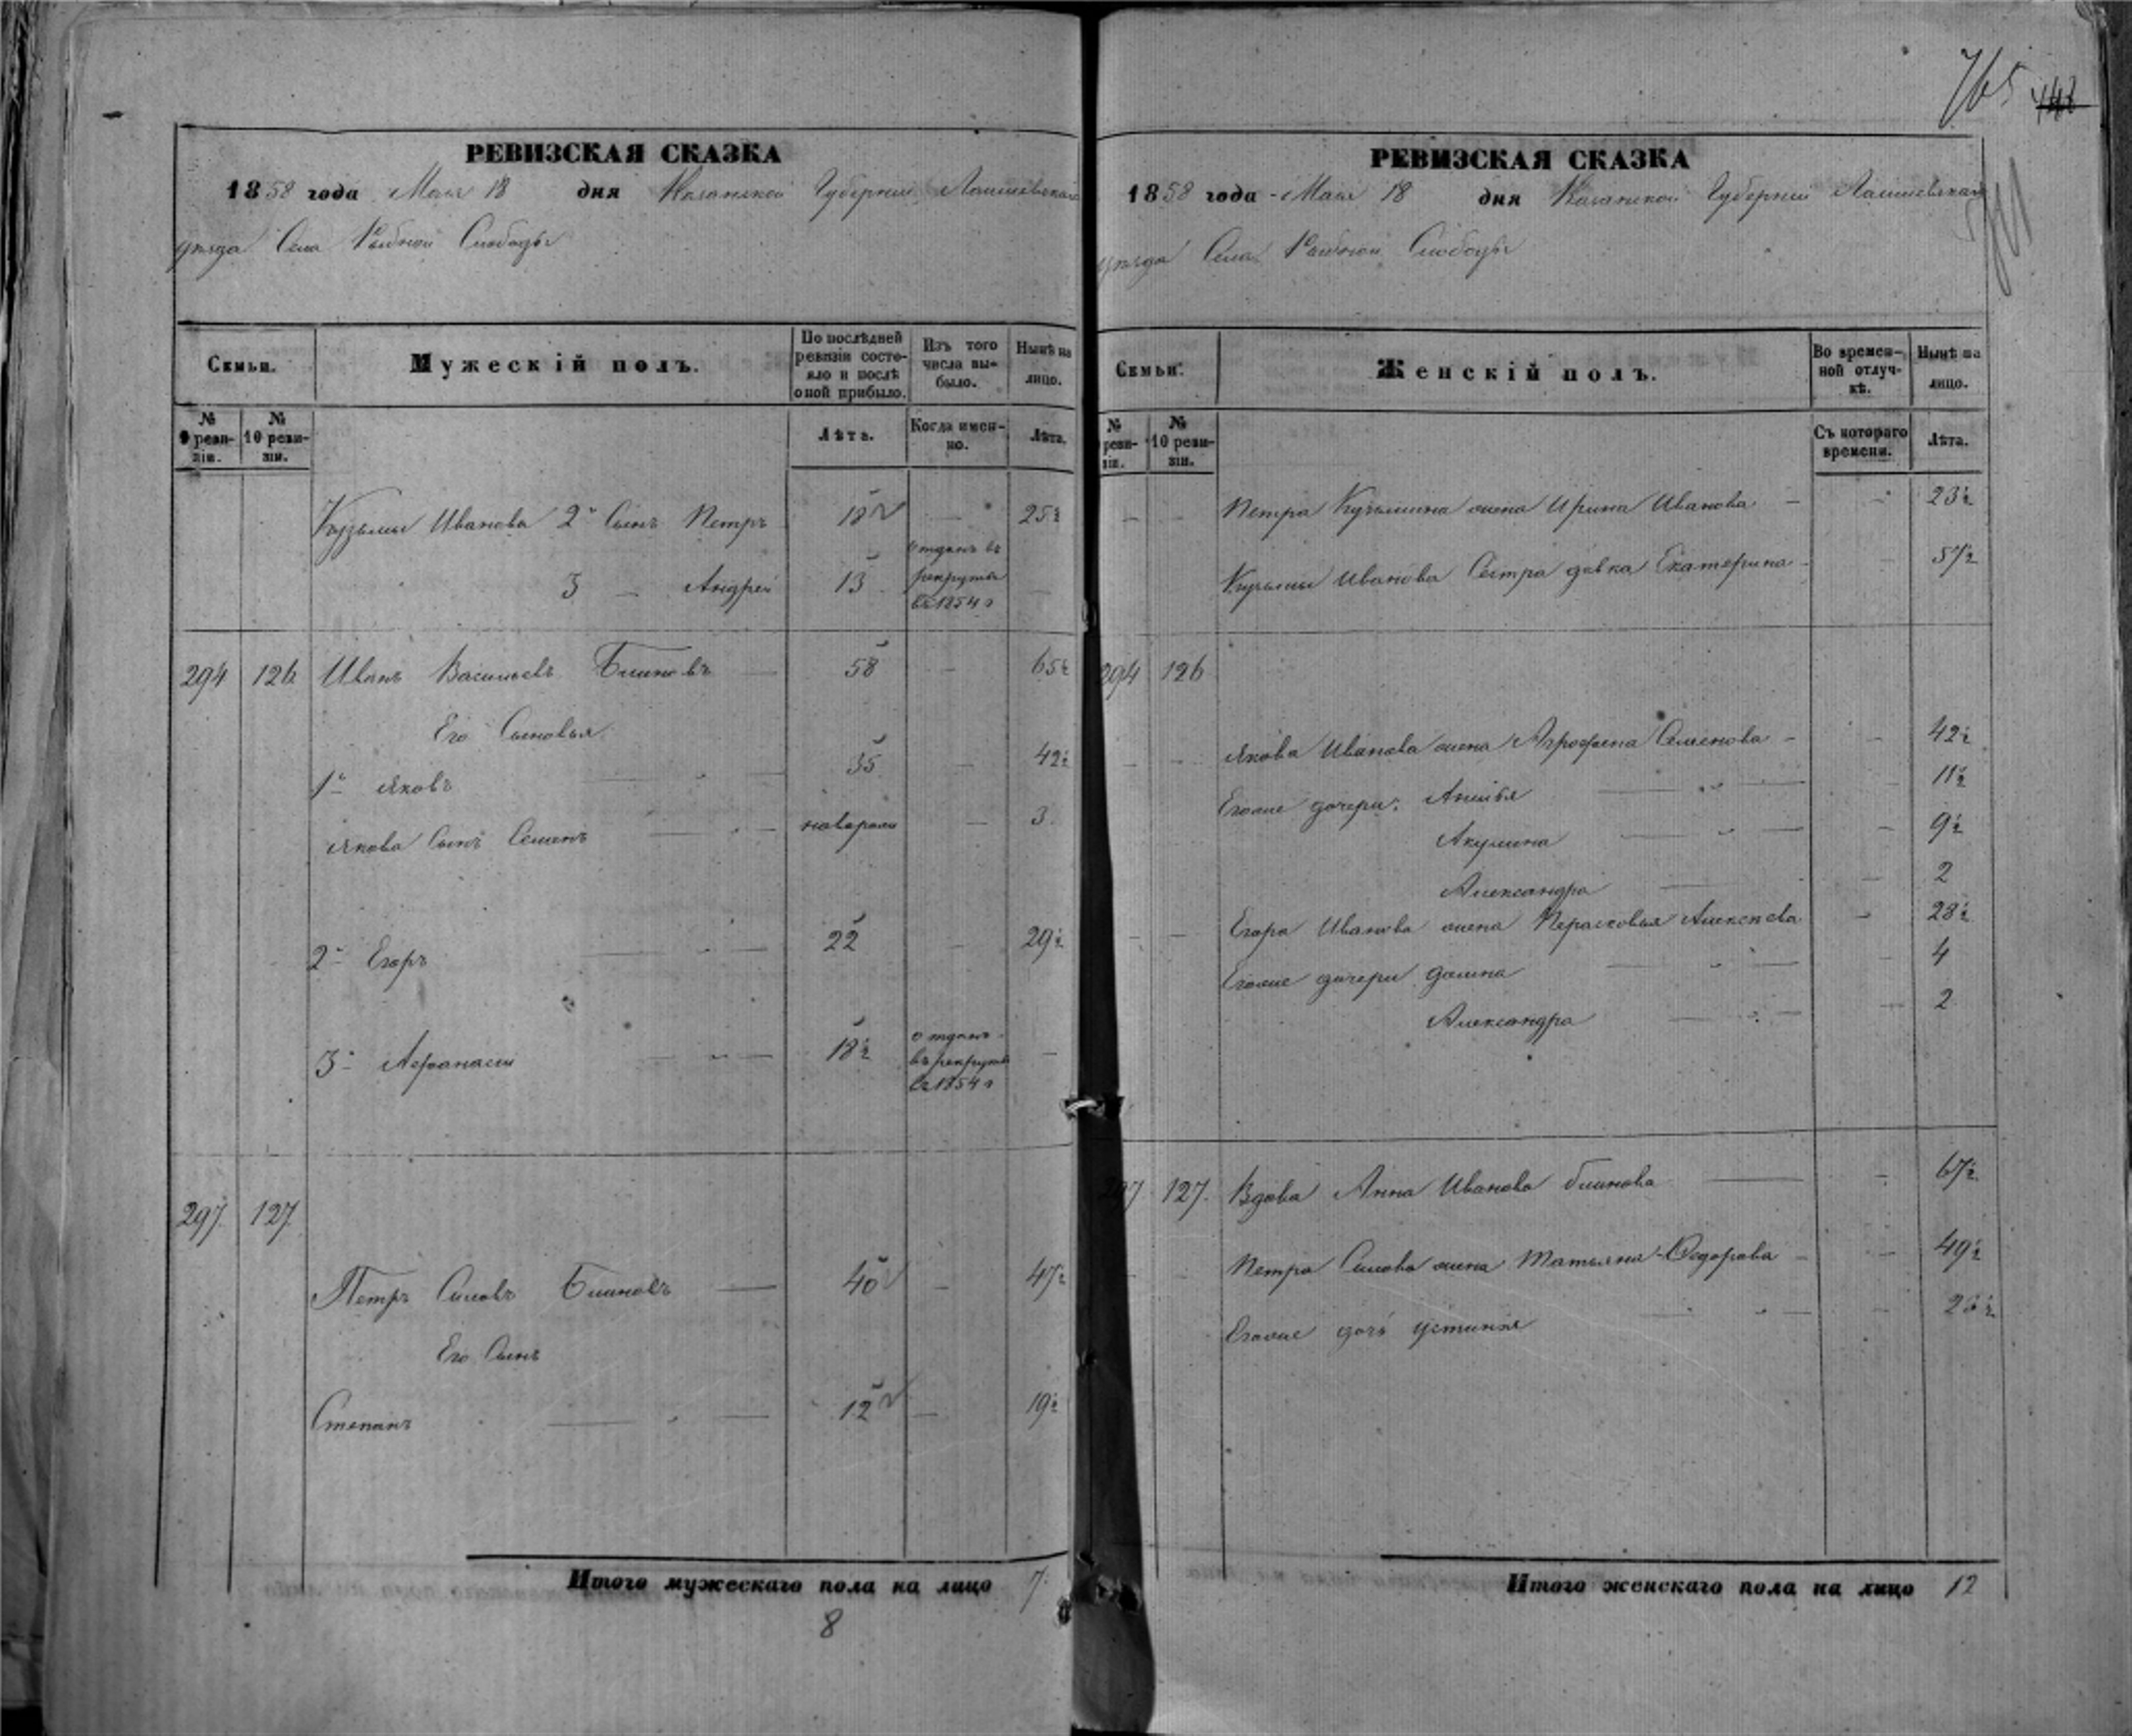 765 442
РЕВИЗСКАЯ СКАЗКА
1858 года Мая 18 дня Казанской Губернии Лаишевскаго
уѣзда Села Рыбной Слободы
Семьи.
Мужескій полъ.
По послѣдней ревизіи состояло и послѣ оной прибыло.
Изъ того числа выбыло.
Нынѣ на лицо.
№ 9 ревизіи.
№ 10 ревизіи.
Лѣта.
Когда именно.
Лѣта.
Кузьмы Иванова 2й Сынъ Петръ 18 — 25½
3 — Андрей 13 отданъ въ рекруты въ 1854 г —
294 126 Иванъ Васильевъ Блиновъ — 58 — 65½
Его Сыновья
1й Яковъ 35 — 42½
Якова Сынъ Семенъ новорож — 3
2й Егоръ 22 — 29½
3й Афанасій 18½ отданъ въ рекруты въ 1854 г —
297 127
Петръ Силовъ Блиновъ — 40 — 47½
Его Сынъ
Степанъ 12 — 19½
Итого мужескаго пола на лицо 7
8
РЕВИЗСКАЯ СКАЗКА
1858 года Мая 18 дня Казанской Губернии Лаишевскаго
уѣзда Села Рыбной Слободы
Семьи.
Женскій полъ.
Во временной отлучкѣ.
Нынѣ на лицо.
№ реви- зіи.
№ 10 ревизіи.
Съ котораго времени.
Лѣта.
Петра Кузьмина жена Ирина Иванова — 23½
Кузьмы Иванова Сестра девка Екатерина — 57½
294 126
Якова Иванова жена Агрофена Семенова — 42½
Егоже дочери: 11½
Акулина — 9½
Александра — 2
Егора Иванова жена Парасковья Алексеева — 28½
Егоже дочери Домна — 4
Александра — 2
297 127 Вдова Анна Иванова Блинова — 67½
Петра Силова жена Татьяна Федорова — 49½
Егоже дочь Устинья — 26½
Итого женскаго пола на лицо 12